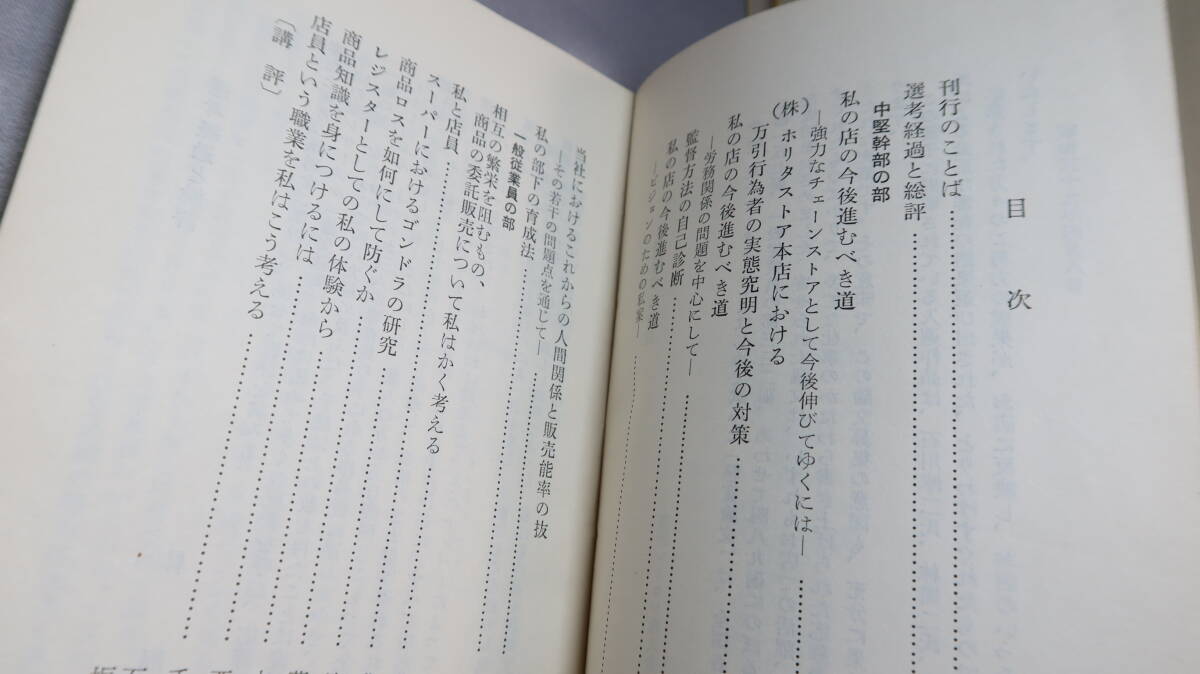 目次
刊行のことば
選考経過と総評
中堅幹部の部
私の店の今後進むべき道
―強力なチェーンストアとして今後伸びてゆくには―
(株)ホリタストア本店における
万引行為者の実態究明と今後の対策
私の店の今後進むべき道
―労務関係の問題を中心にして―
監督方法の自己診断
私の店の今後進むべき道
―ビジョンのための私案―
当社におけるこれからの人間関係と販売能率の抜
―その若干の問題点を通じて―
私の部下の育成法
一般従業員の部
相互の繁栄を阻むもの、
商品の委託販売について私はかく考える
私と店員
スーパーにおけるゴンドラの研究
商品ロスを如何にして防ぐか
レジスターとしての私の体験から
商品知識を身につけるには
店員という職業を私はこう考える
〔講評〕